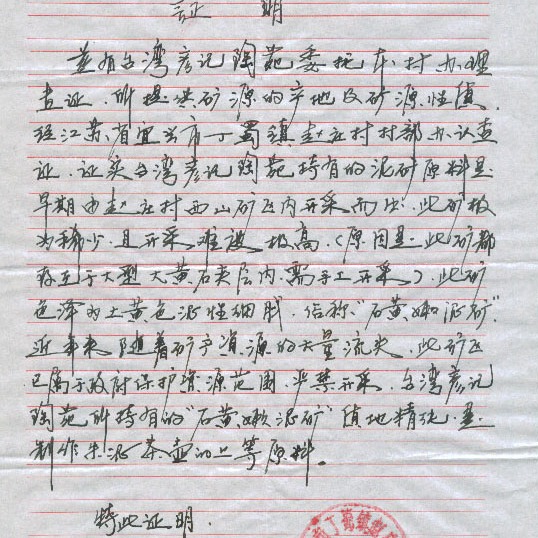 证 明
兹有台湾彦记陶苑委托本村办理
查证,所提供矿源的产地及矿源性值,
经江苏省宜兴市丁蜀镇赵庄村村部办认查
证,证实台湾彦记陶苑持有的泥矿原料是
早期由赵庄村西山矿区内开采而出,此矿极
为稀少,且开采难度极高,(原因是此矿都
存在于大型大黄石夹层内,需手工开采),此矿
色泽为土黄色泥性细腻,俗称"石黄嫩泥矿".
近年来随着矿产资源的大量流失,此矿区
已属于政府保护资源范围,严禁开采,台湾彦记
陶苑所持有的"石黄嫩泥矿"值地精纯,是
制作朱泥茶壶的上等原料。
特此证明.
丁蜀镇赵